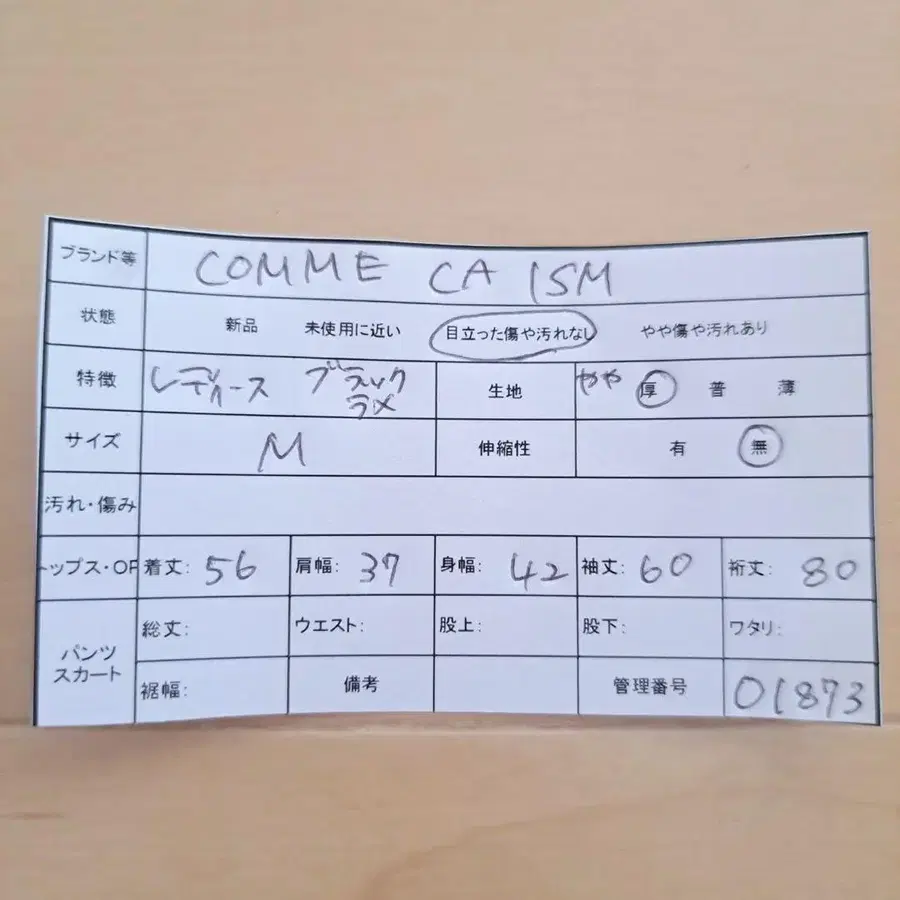 ブランド等 COMME CA ISM
状態 新品 未使用に近い 目立った傷や汚れなし やや傷や汚れあり
特徴 レディース ブラック ラメ 生地 やや 厚 普 薄
サイズ M 伸縮性 有 無
汚れ・傷み
トップス・OP 着丈: 56 肩幅: 37 身幅: 42 袖丈: 60 裄丈: 80
パンツ スカート 総丈: ウエスト: 股上: 股下: ワタリ:
裾幅: 備考 管理番号 01873